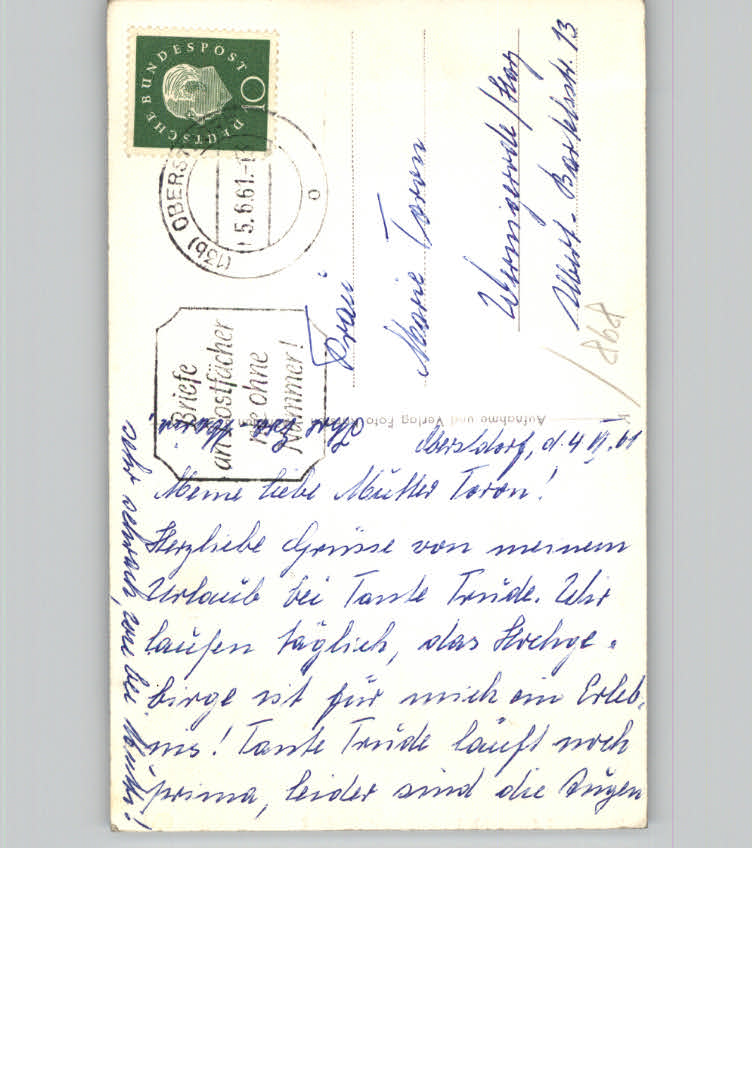 DEUTSCHE BUNDESPOST
10
(13b) OBERST
5.6.61.-18
Briefe
an Postfächer
nie ohne
Nummer!
Frau
Marie Toron
Wernigerode/Harz
Albert-Bartelsstr. 13
868
Aufnahme und Verlag Foto
Oberstdorf, d. 4 VI. 61
Meine liebe Mutter Toron!
Herzliebe Grüsse von meinem
Urlaub bei Tante Trude. Wir
laufen täglich, das Hochge-
birge ist für mich ein Erleb-
nis! Tante Trude läuft noch
prima, leider sind die Augen
sehr schwach, wie bei Mutti!